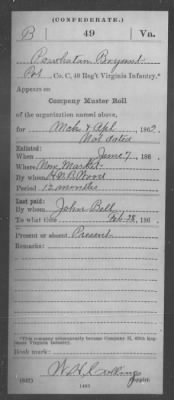 (CONFEDERATE.)
B 49 Va.
Powhatan Bryant
Pvt Co. C, 49 Reg't Virginia Infantry.*
Appears on
Company Muster Roll
of the organization named above,
for Mch & Apl, 1862.
Not dated
Enlisted:
When June 7, 186
Where New Market
By whom H. B. Wood
Period 12 months
Last paid:
By whom John Bell
To what time Feb 28, 186
Present or absent Present
Remarks:
*This company subsequently became Company H, 49th Regiment Virginia Infantry.
Book mark:
(642)
Copyist.